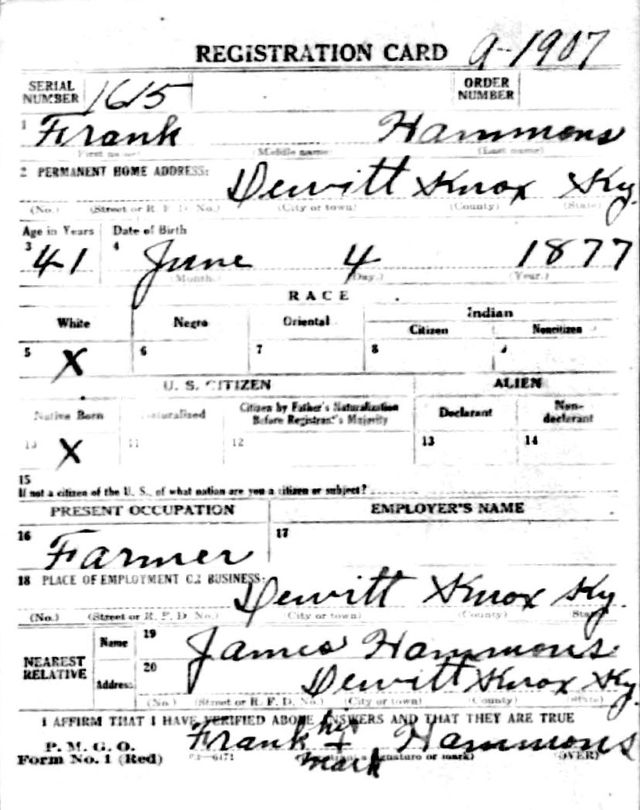 REGISTRATION CARD a-1907
SERIAL NUMBER 1615 ORDER NUMBER
1 Frank Hammons
(First name) (Middle name) (Last name)
2 PERMANENT HOME ADDRESS: Dewitt Knox Ky.
(No.) (Street or R. F. D. No.) (City or town) (County) (State)
Age in Years Date of Birth
3 41 4 June 4 1877
(Month.) (Day.) (Year.)
RACE
White Negro Oriental Indian
Citizen Noncitizen
5 X 6 7 8
U. S. CITIZEN ALIEN
Native Born Naturalized Citizen by Father's Naturalization Before Registrant's Majority Declarant Non-declarant
10 X 11 12 13 14
15
If not a citizen of the U. S., of what nation are you a citizen or subject?
PRESENT OCCUPATION EMPLOYER'S NAME
16 Farmer 17
18 PLACE OF EMPLOYMENT OR BUSINESS: Dewitt Knox Ky.
(No.) (Street or R. F. D. No.) (City or town) (County) State
NEAREST RELATIVE Name 19 James Hammons
Address 20 Dewitt Knox Ky.
(No.) (Street or R. F. D. No.) (City or town) (County) (State)
I AFFIRM THAT I HAVE VERIFIED ABOVE ANSWERS AND THAT THEY ARE TRUE
P. M. G. O.
Form No. 1 (Red) Frank his + mark Hammons
signature or mark) (OVER)